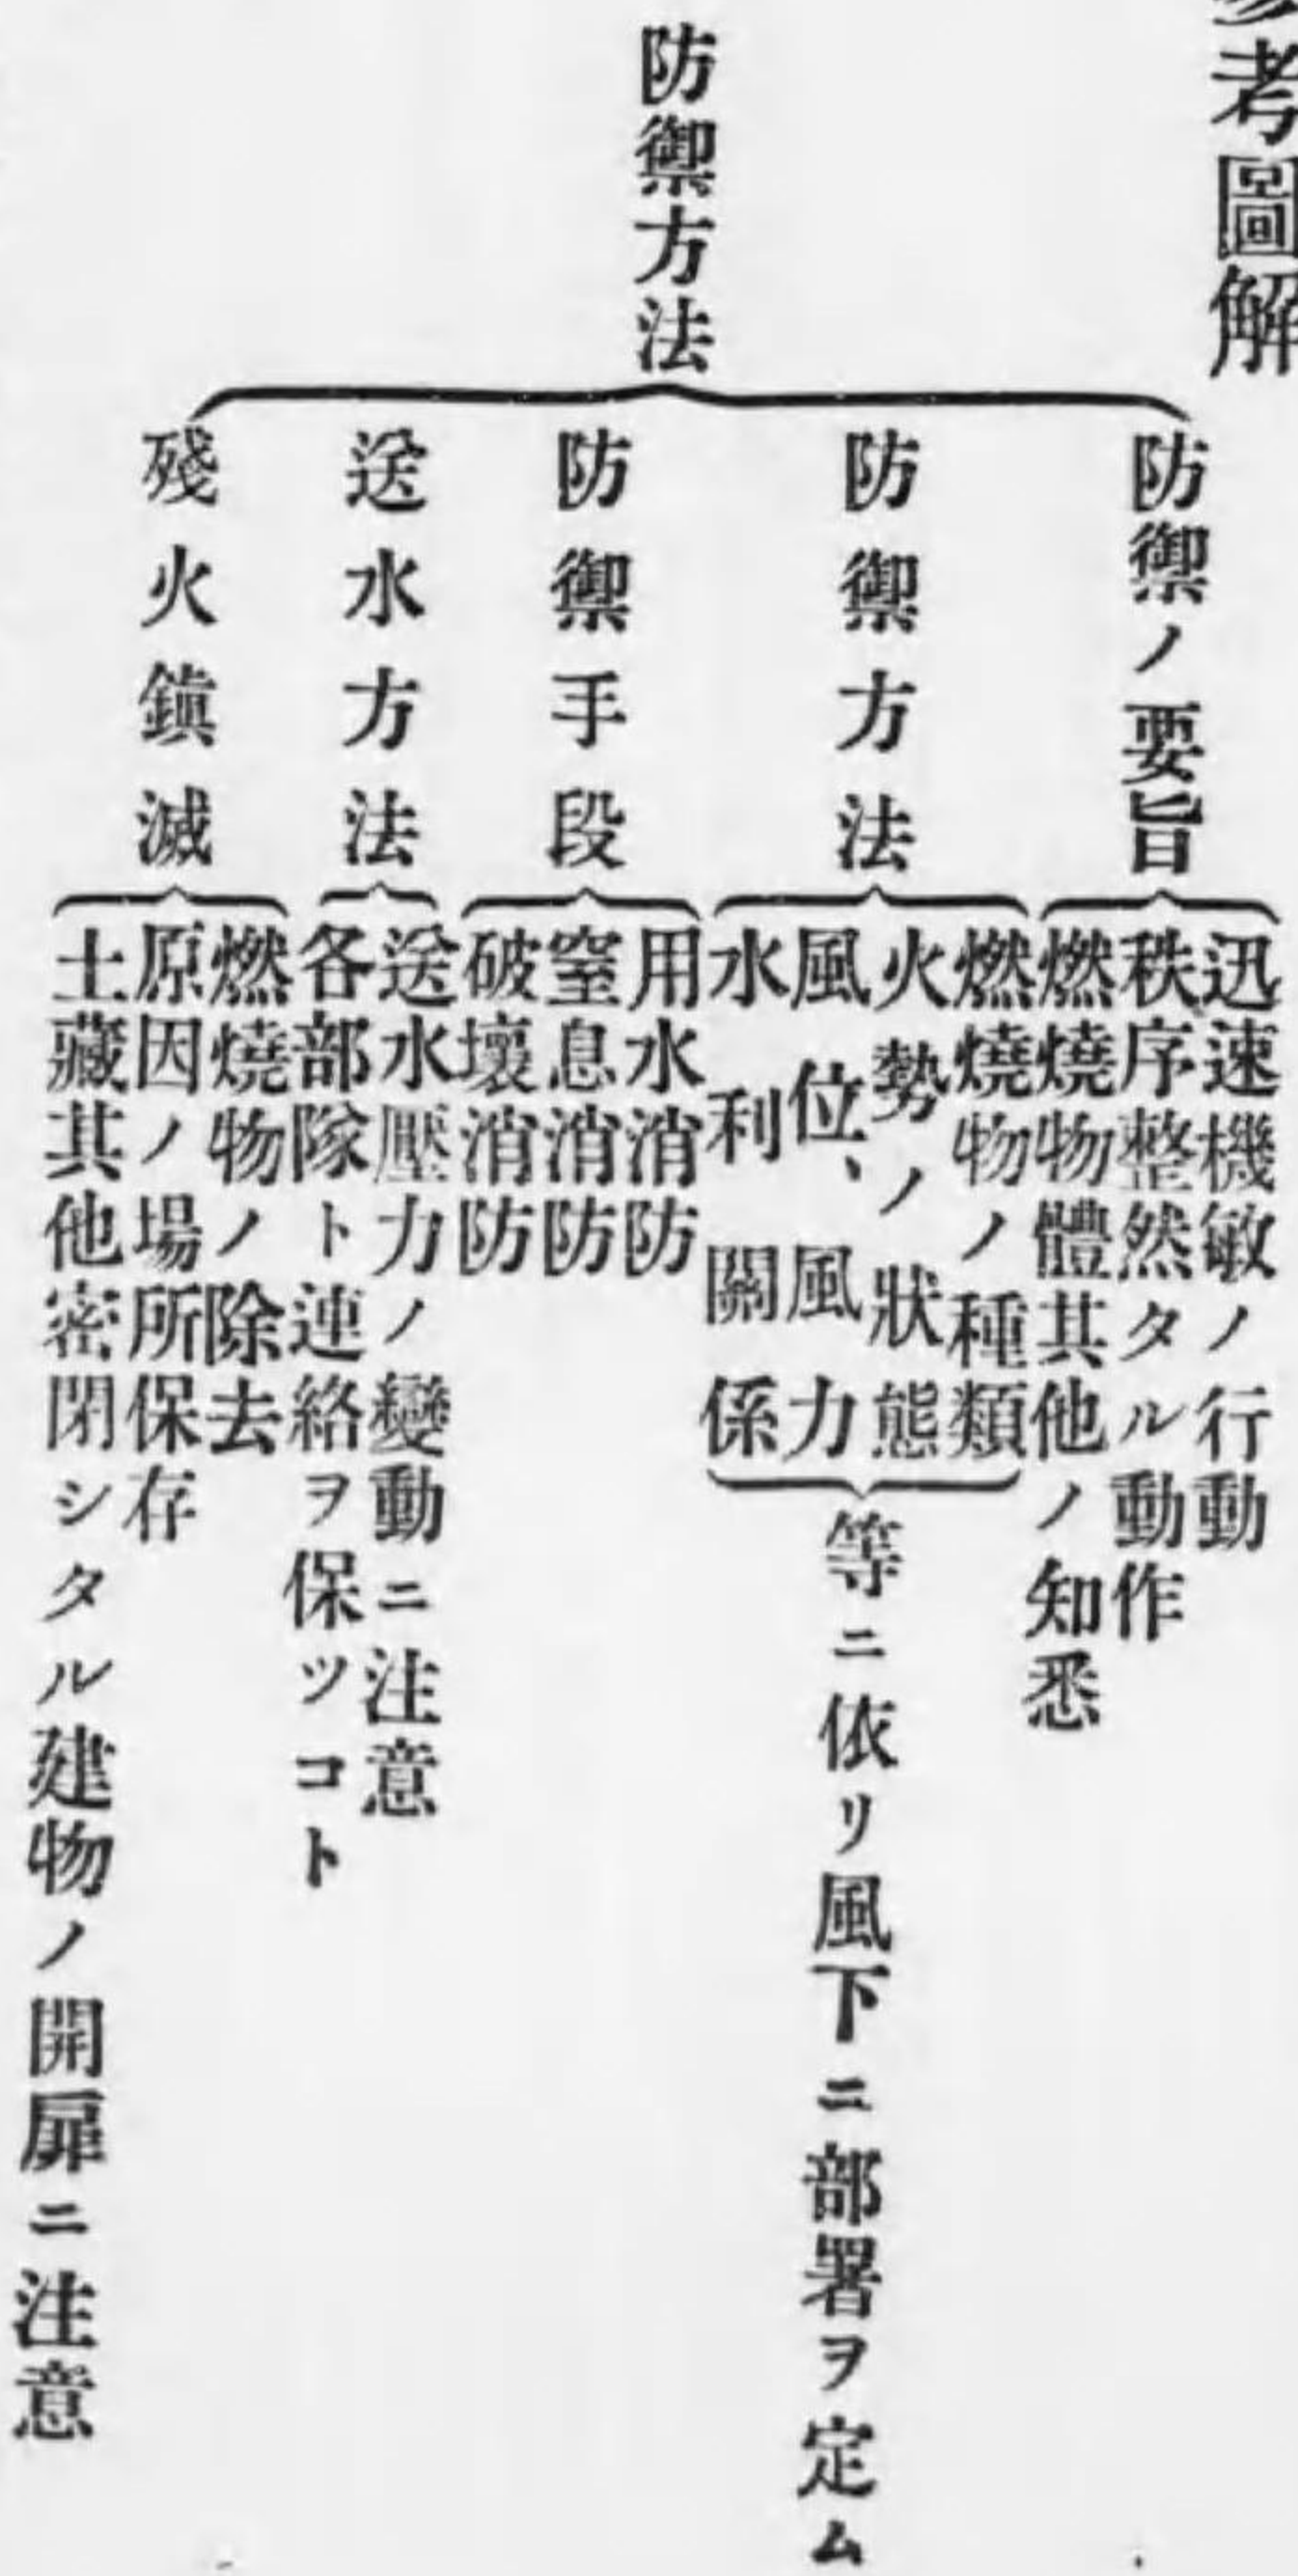 參考圖解
防禦方法
防禦ノ要旨
迅速機敏ノ行動
秩序整然タル動作
燃燒物體其他ノ知悉
防禦方法
燃燒物ノ種類
火勢ノ狀態
風位、風力
水利關係
等ニ依リ風下ニ部署ヲ定ム
防禦手段
用水消防
窒息消防
破壞消防
送水方法
送水壓力ノ變動ニ注意
各部隊ト連絡ヲ保ツコト
殘火鎭滅
燃燒物ノ除去
原因ノ場所保存
土藏其他密閉シタル建物ノ開扉ニ注意